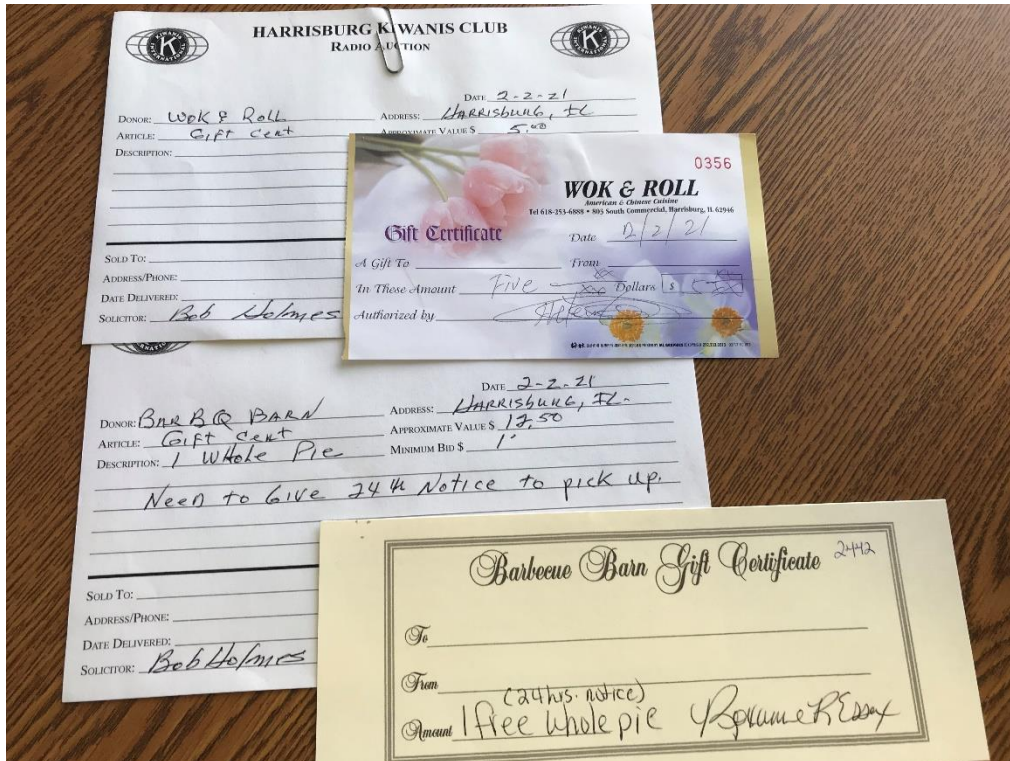 HARRISBURG KIWANIS CLUB
RADIO AUCTION
DATE 2-2-21
DONOR: WOK & ROLL ADDRESS: HARRISBURG, IL
ARTICLE: Gift Cent APPROXIMATE VALUE $ 5.00
DESCRIPTION:
SOLD TO:
ADDRESS/PHONE:
DATE DELIVERED:
SOLICITOR: Bob Holmes
0356
WOK & ROLL
American & Chinese Cuisine
Tel 618-253-6888 • 805 South Commercial, Harrisburg, IL 62946
Gift Certificate Date 2/2/21
A Gift To From
In These Amount Five Dollars $
Authorized by
DATE 2-2-21
DONOR: BAR B Q BARN ADDRESS: HARRISBURG, IL.
ARTICLE: Gift Cent APPROXIMATE VALUE $ 12.50
DESCRIPTION: 1 Whole Pie MINIMUM BID $ 1
Need to Give 24 hr Notice to pick up.
SOLD TO:
ADDRESS/PHONE:
DATE DELIVERED:
SOLICITOR: Bob Holmes
Barbecue Barn Gift Certificate 2442
To
From
(24 hrs. notice)
Amount 1 free whole pie